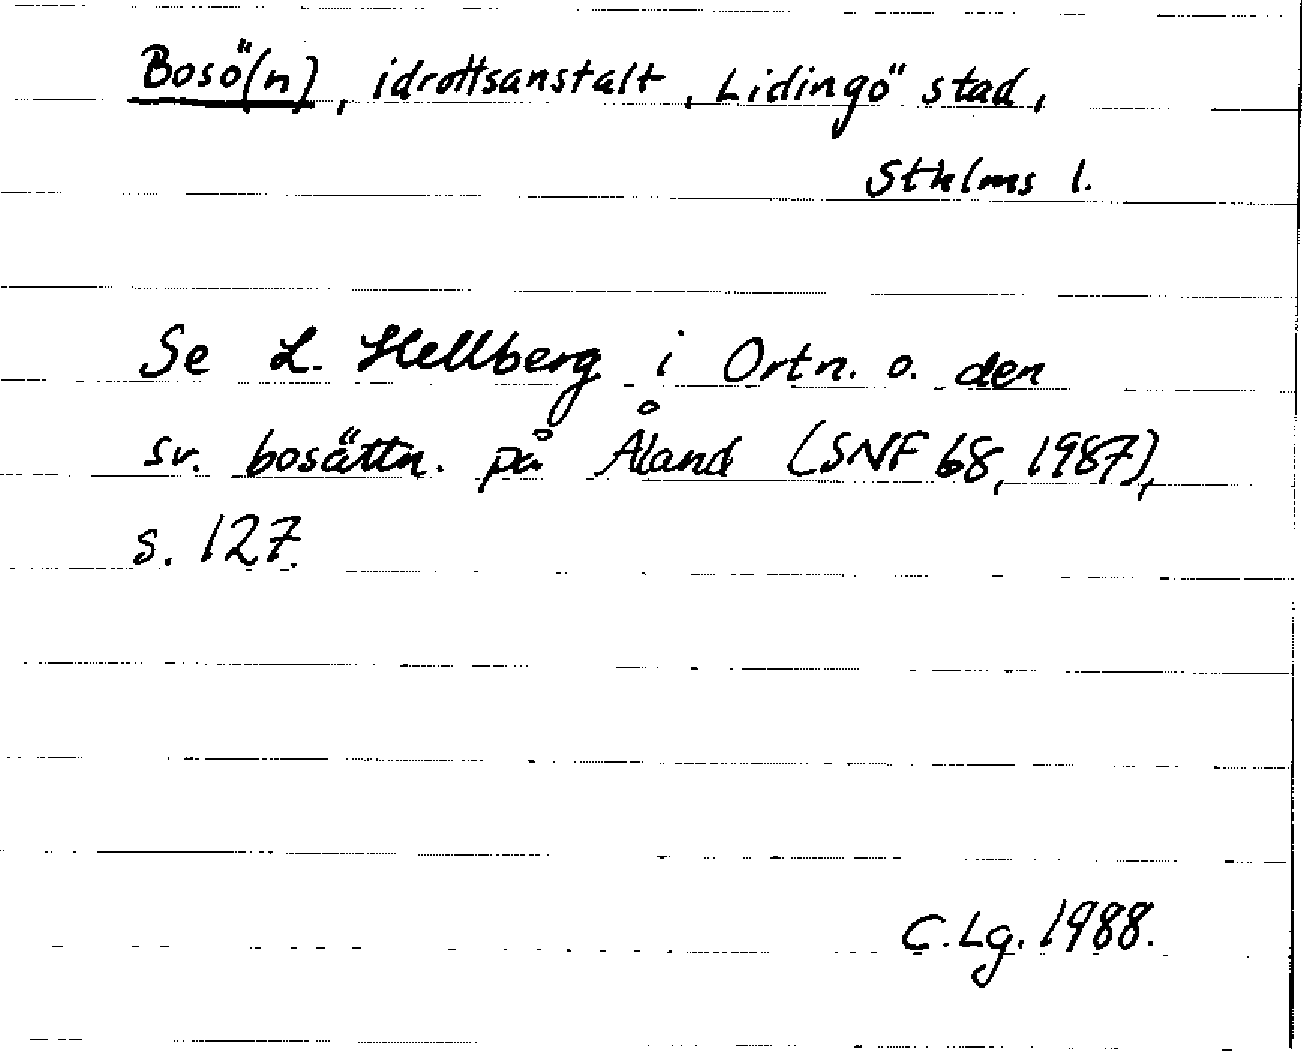 Bosö(n), idrottsanstalt, Lidingö stad,
Sthlms l.
Se L. Hellberg i Ortn. o. den
sv. bosättn. på Åland (SNF 68, 1987),
s. 127.
C.Lg. 1988.